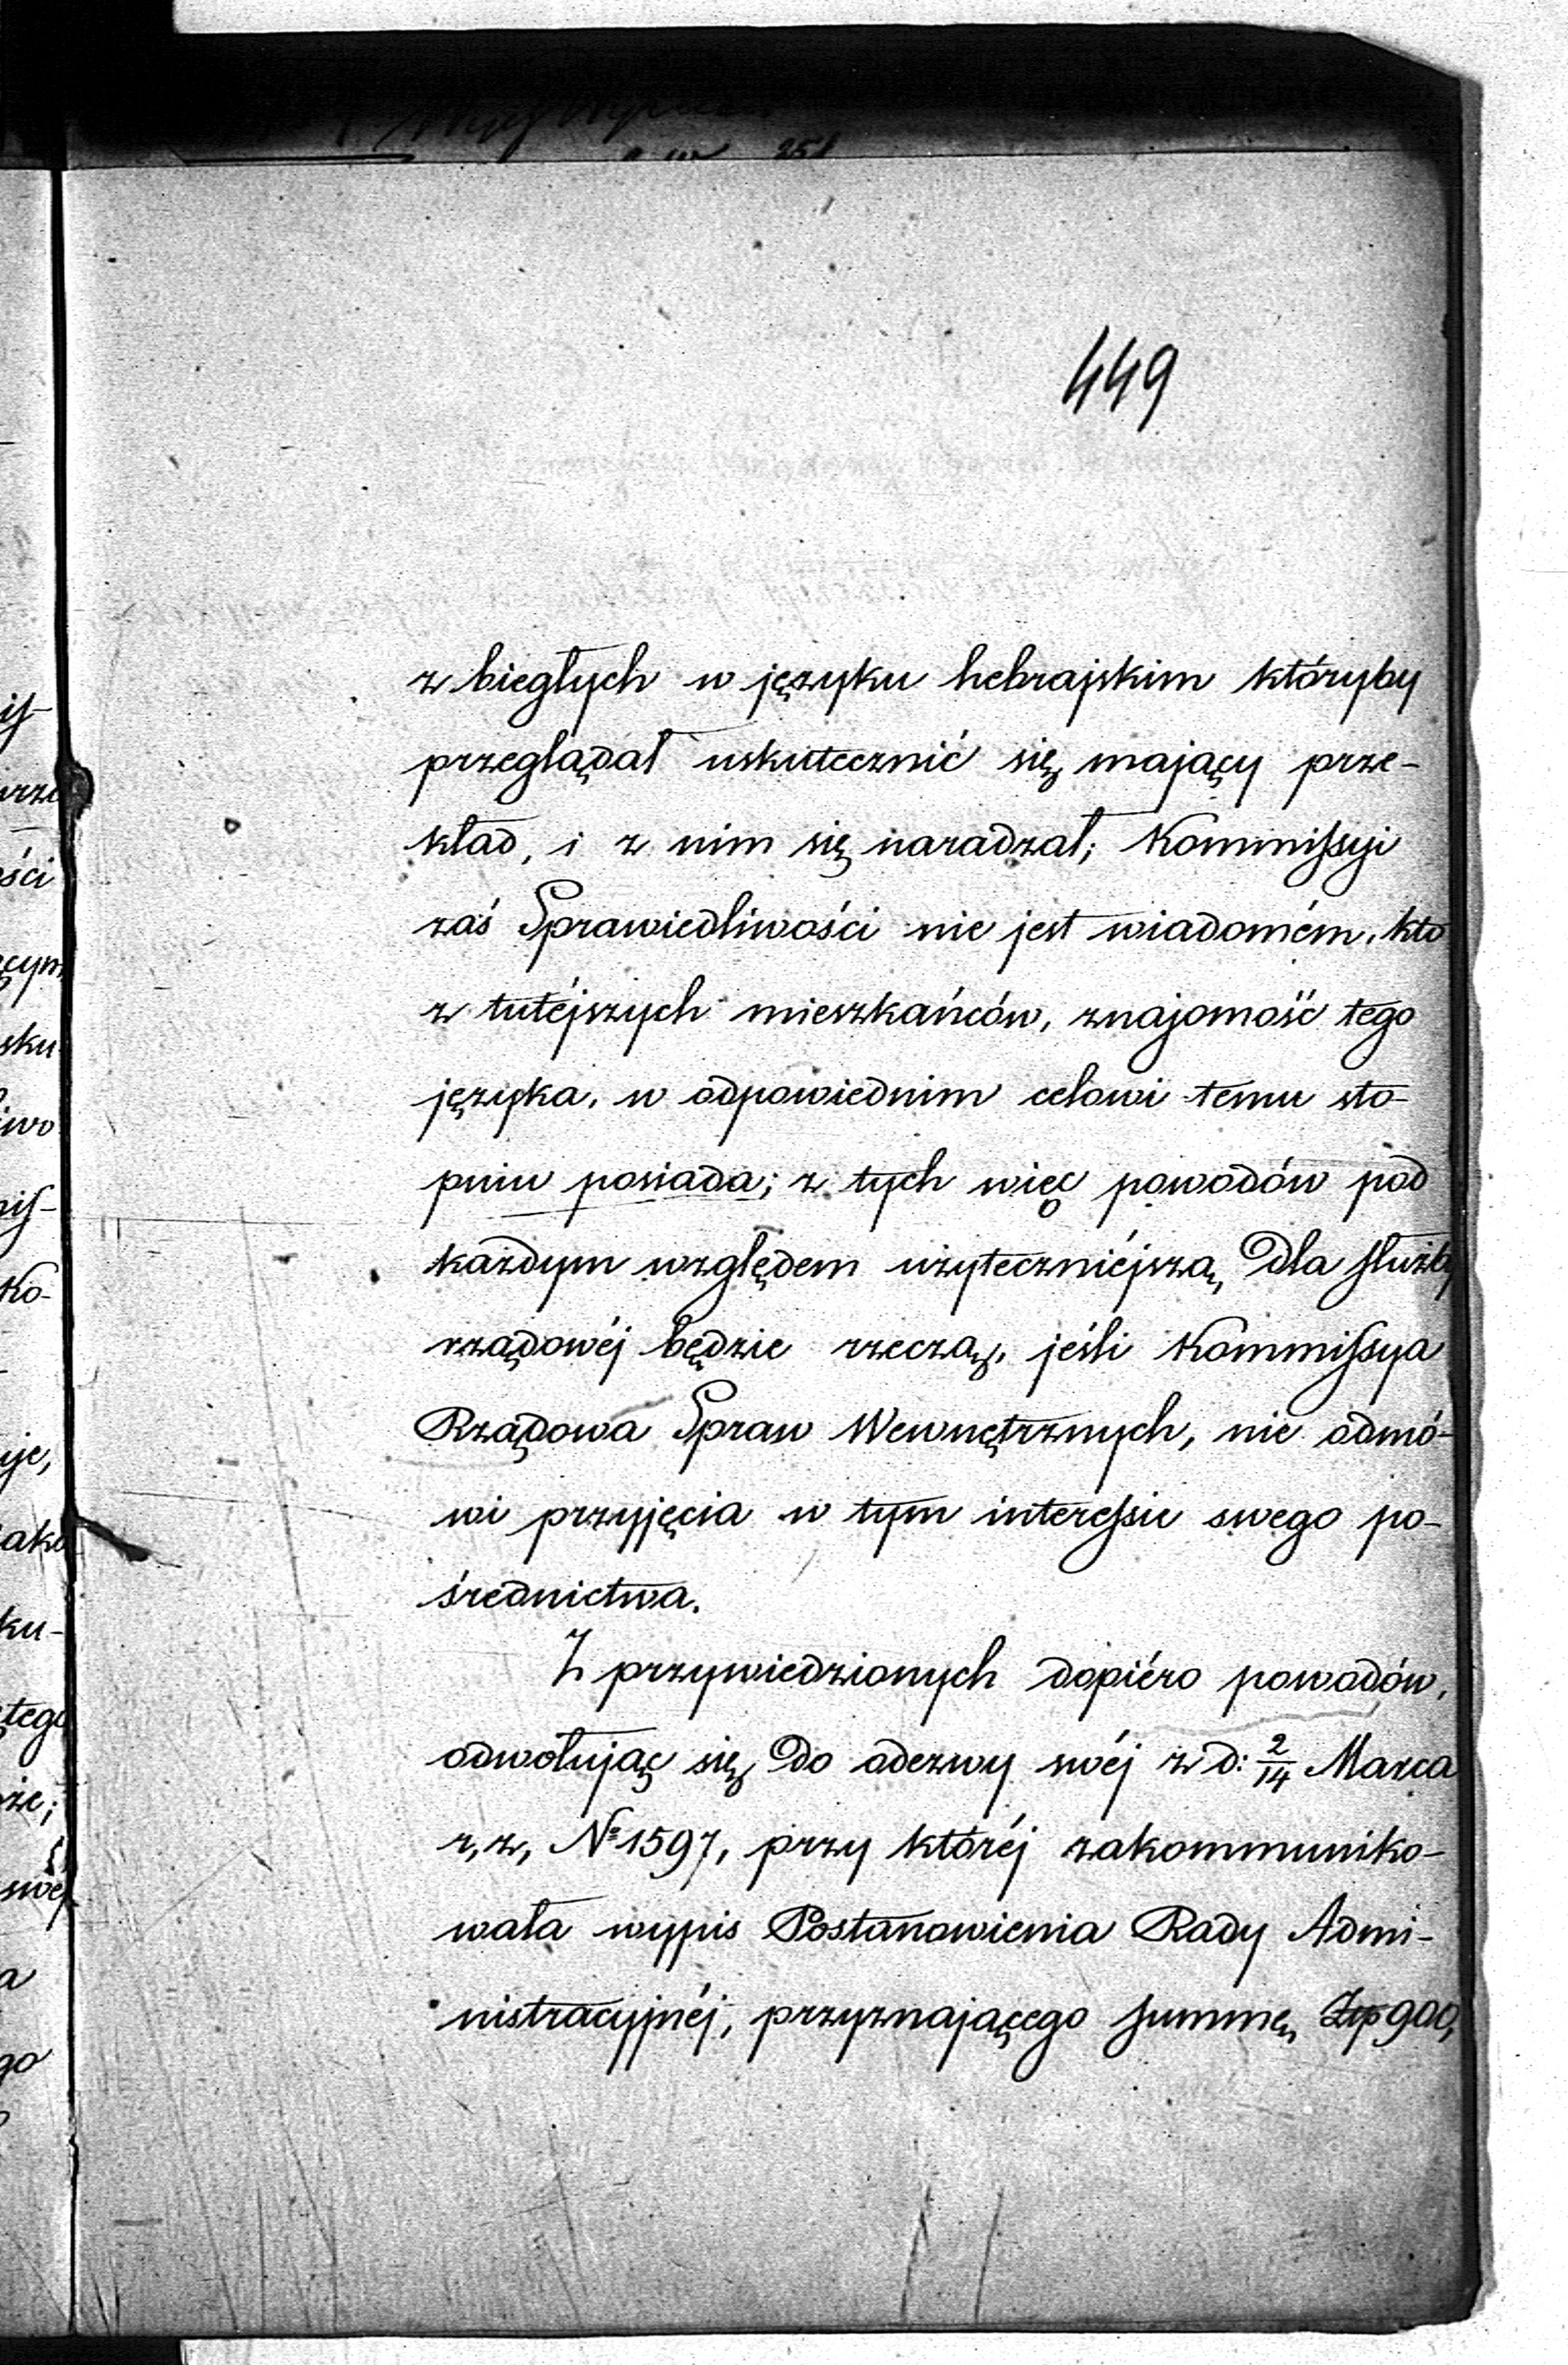 449
z biegłych w języku hebrajskim któryby
przeglądał uskutecznić się mający prze-
kład, i z nim się naradzał; Kommissyi
zaś Sprawiedliwości nie jest wiadomém, kto
z tutéjszych mieszkańców, znajomość tego
języka, w odpowiednim celowi temu sto-
pniu posiada; z tych więc powodów pod
każdym względem użyteczniéjszą dla służby
rządowéj będzie rzeczą, jeśli Kommissya
Rządowa Spraw Wewnętrznych, nie odmó-
wi przyjęcia w tym interessie swego po-
średnictwa.
Z przywiedzionych dopiéro powodów,
odwołując się do odezwy swéj z d: 2/14 Marca
r, z, № 1597, przy któréj zakommuniko-
wała wypis Postanowienia Rady Admi-
nistracyjnéj, przyznającego summę Złp 900,